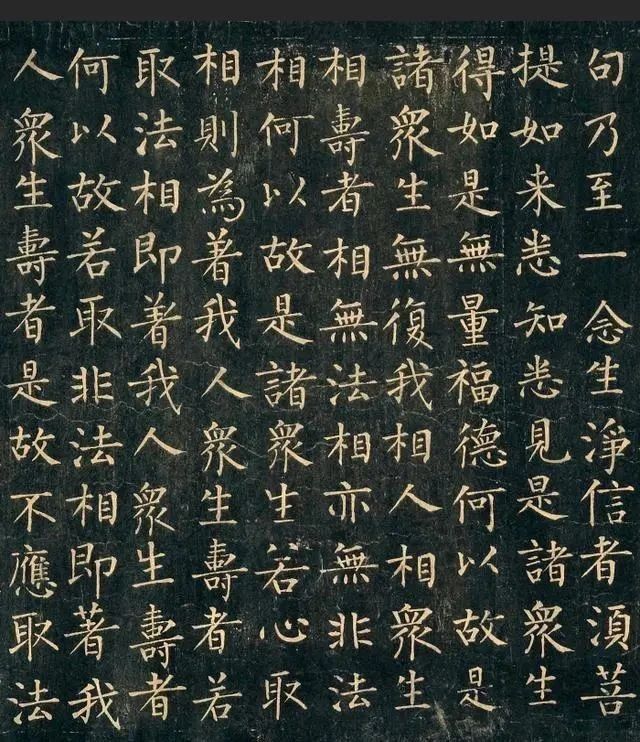 句乃至一念生淨信者湏菩
提如来悉知悉見是諸衆生
得如是無量福德何以故是
諸衆生無復我相人相衆生
相壽者相無法相亦無非法
相何以故是諸衆生若心取
相則為著我人衆生壽者若
取法相即著我人衆生壽者
何以故若取非法相即著我
人衆生壽者是故不應取法